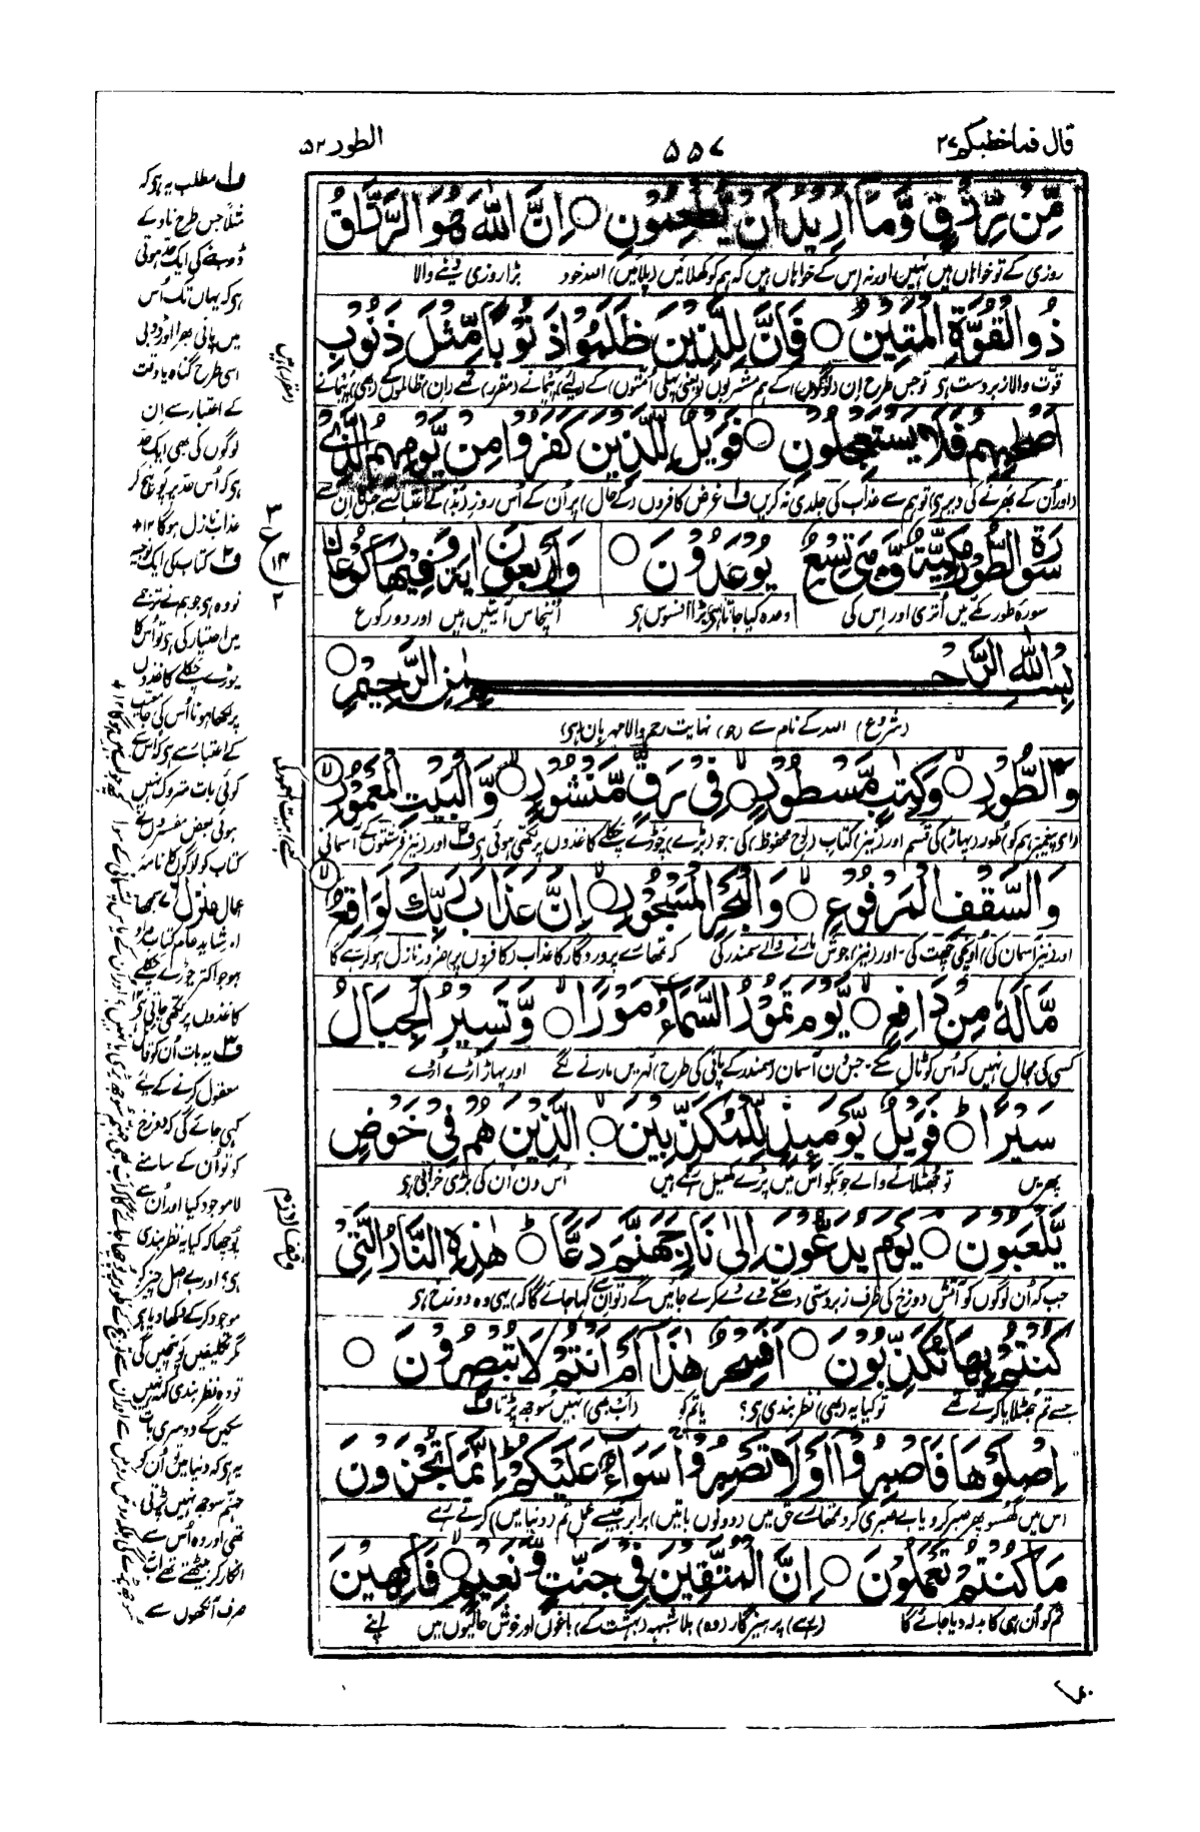 قال فما خطبکم ۲۷
۵۵۷
الطور ۵۲
مِّنْ رِّزْقٍ وَّمَآ اُرِیْدُ اَنْ یُّطْعِمُوْنِ ○ اِنَّ اللّٰهَ هُوَ الرَّزَّاقُ
روزی کے تو خواہاں ہیں نہیں اور نہ اس کے خواہاں ہیں کہ ہم کو کھلائیں (پلائیں) اللہ خود بڑا روزی دینے والا
ذُو الْقُوَّةِ الْمَتِیْنُ ○ فَاِنَّ لِلَّذِیْنَ ظَلَمُوْا ذَنُوْبًا مِّثْلَ ذَنُوْبِ
قوت والا زبردست ہی تو جس طرح ان (لوگوں) کے ہم مشربوں (یعنی پہلی اُمتوں) کے لیے پیمانے (مقرر) تھے (ان) ظالموں کے (بھی) پیمانے
اَصْحٰبِهِمْ فَلَا یَسْتَعْجِلُوْنِ ○ فَوَیْلٌ لِّلَّذِیْنَ كَفَرُوْا مِنْ یَّوْمِهِمُ الَّذِیْ
(اور اُن کے بھرنے کی دیر ہی) تو ہم سے عذاب کی جلدی نہ کریں ف۱ غرض کافروں (کے حال) پر اُن کے اُس روز (بد) کے اعتبار سے جس کا ان سے
یُوْعَدُوْنَ ○
وعدہ کیا جاتا ہی بڑا افسوس ہی
سُوْرَةُ الطُّوْرِ مَكِّیَّةٌ وَّهِیَ تِسْعٌ وَّاَرْبَعُوْنَ اٰیَةً وَّفِیْهَا رُكُوْعَانِ
سورۂ طور مکے میں اُتری اور اس کی اُنچاس آیتیں ہیں اور دو رکوع
بِسْمِ اللّٰهِ الرَّحْمٰنِ الرَّحِیْمِ ○
(شروع) اللہ کے نام سے (جو) نہایت رحم والا مہربان ہی
وَالطُّوْرِ ○ وَكِتٰبٍ مَّسْطُوْرٍ ○ فِیْ رَقٍّ مَّنْشُوْرٍ ○ وَّالْبَیْتِ الْمَعْمُوْرِ
(اے پیغمبر ہم کو) طور (پہاڑ) کی قسم اور (نیز) کتاب (لوح محفوظ) کی۔ جو (بڑے) چوڑے چکلے کاغذوں پر لکھی ہوئی ہی ف۲ اور (نیز فرشتوں کے) آسمانی
وَالسَّقْفِ الْمَرْفُوْعِ ○ وَالْبَحْرِ الْمَسْجُوْرِ ○ اِنَّ عَذَابَ رَبِّكَ لَوَاقِعٌ
اور (نیز آسمان کی) اونچی چھت کی۔ اور (نیز) جوش مارنے والے سمندر کی کہ تمھارے پروردگار کا عذاب (کافروں پر) ضرور نازل ہو کر رہے گا
مَّالَهٗ مِنْ دَافِعٍ ○ یَّوْمَ تَمُوْرُ السَّمَآءُ مَوْرًا ○ وَّتَسِیْرُ الْجِبَالُ
کسی کی مجال نہیں کہ اُس کو ٹال سکے۔ جس دن آسمان (سمندر کے پانی کی طرح) لہریں مارنے لگے اور پہاڑ اُڑے اُڑے
سَیْرًا ○ فَوَیْلٌ یَّوْمَئِذٍ لِّلْمُكَذِّبِیْنَ ○ الَّذِیْنَ هُمْ فِیْ خَوْضٍ
پھریں تو جھٹلانے والے جو بکواس میں پڑے کھیل رہے ہیں اُس دن اُن کی بڑی خرابی ہی
یَّلْعَبُوْنَ ○ یَوْمَ یُدَعُّوْنَ اِلٰی نَارِ جَهَنَّمَ دَعًّا ○ هٰذِهِ النَّارُ الَّتِیْ
جب کہ اُن لوگوں کو آتش دوزخ کی طرف زبردستی دھکے دے دے کر لے جائیں گے (تو ان سے) کہا جائے گا کہ یہی وہ دوزخ ہی
كُنْتُمْ بِهَا تُكَذِّبُوْنَ ○ اَفَسِحْرٌ هٰذَآ اَمْ اَنْتُمْ لَا تُبْصِرُوْنَ ○
جسے تم جھٹلایا کرتے تھے تو کیا یہ (بھی) نظربندی ہی؟ یا تم کو (اب بھی) نہیں سوجھ پڑتا ف۳
اِصْلَوْهَا فَاصْبِرُوْٓا اَوْ لَا تَصْبِرُوْا سَوَآءٌ عَلَیْكُمْ اِنَّمَا تُجْزَوْنَ
اس میں گھسو پھر صبر کرو یا بے صبری کرو تمھارے حق میں (دونوں باتیں) برابر جیسے عمل تم (دنیا میں) کرتے رہے
مَا كُنْتُمْ تَعْمَلُوْنَ ○ اِنَّ الْمُتَّقِیْنَ فِیْ جَنّٰتٍ وَّنَعِیْمٍ ○ فٰكِهِیْنَ
تم کو اُن ہی کا بدلہ دیا جائے گا (رہے) پرہیزگار (وہ) بلا شبہہ (بہشت کے) باغوں اور خوش حالیوں میں اپنے
ف۱ مطلب یہ ہی کہ
مثلًا جس طرح ناؤ کے
ڈوبنے کی ایک حد ہوتی
ہی کہ یہاں تک اُس
میں پانی بھرا اور ڈوبی
اسی طرح گناہ یا وقت
کے اعتبار سے ان
لوگوں کی بھی ایک حد
ہی کہ اُس حد پر پہنچ کر
عذاب نازل ہوگا ۱۲
ف۲ کتاب کی ایک توجیہ
تو وہ ہی جو ہم نے ترجمے
میں اختیار کی ہی تو اُس کا
چوڑے چکلے کاغذوں
پر لکھا ہونا اُس کی جامعیت
کے اعتبار سے ہی کہ اس سے
کوئی بات متروک نہیں
ہوئی بعض مفسروں نے
کتاب کو لوگوں کا نامہ
اعمال
سمجھا
اور شاید عام کتاب مراد
ہو جو اکثر چوڑے چکلے
کاغذوں پر لکھی جاتی ہی ۱۲
ف۳ یہ بات اُن کو قائل
معقول کرنے کے لیے
کہی جائے گی کہ دوزخ
کو تو اُن کے سامنے
لا موجود کیا اور اُن سے
پوچھا کہ کیا یہ نظربندی
ہی؟ اور بے اصل چیز کو
موجود کرکے دکھا دیا ہی
مگر تکلیفیں پہنچیں گی
تو وہ نظربندی کہہ نہیں
سکیں گے دوسری بات
یہ ہی کہ دنیا میں اُن کو
جہنم سوجھ نہیں پڑتی
تھی اور وہ اُس سے
انکار کر بیٹھتے تھے اب
صرف آنکھوں سے
وقف لازم